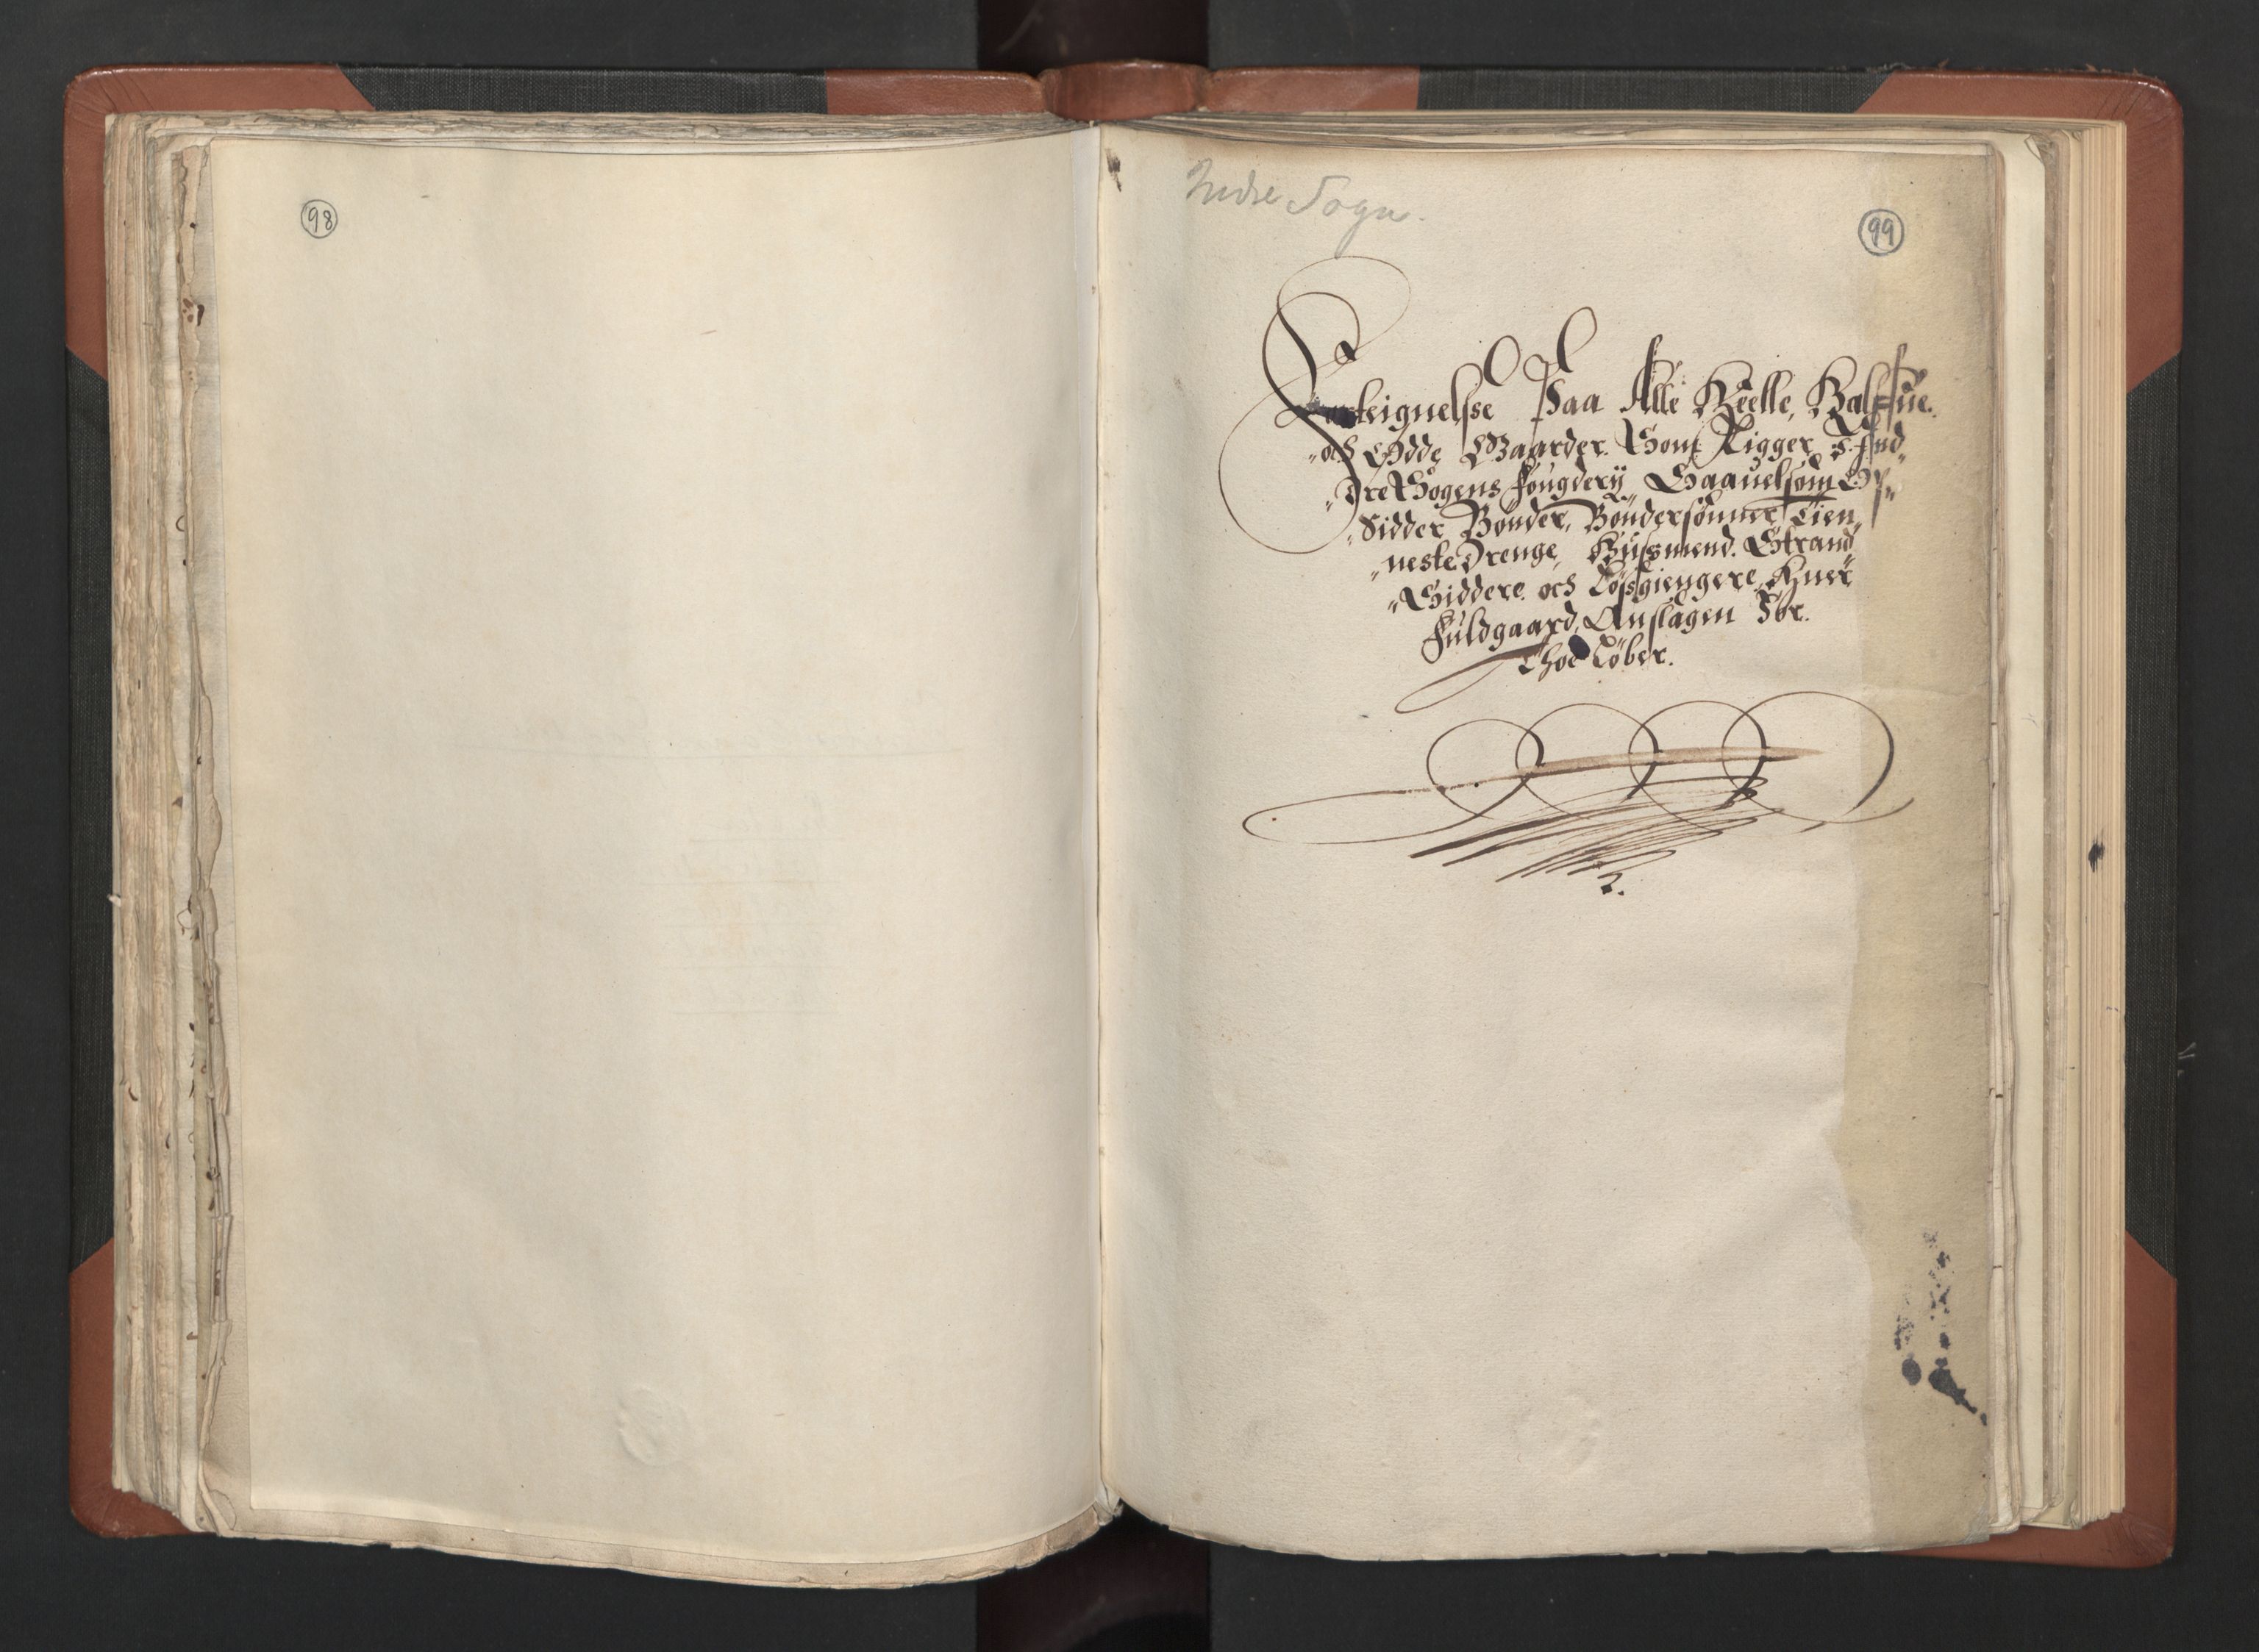 98
Indre Sogn.
99
Forteignelsse Paa Alle Heelle, Halfue.
och Ødde Gaarder. Som Ligger J. Ind
dre Sogens fougderij Saauelsom Op
Sidder Bønder, Bøndersønner, Tien
neste Drenge, Huusmend. Strand
Siddere, och Løsgiengere. Huer
fuldgaard, Anslagen For.
Løber.